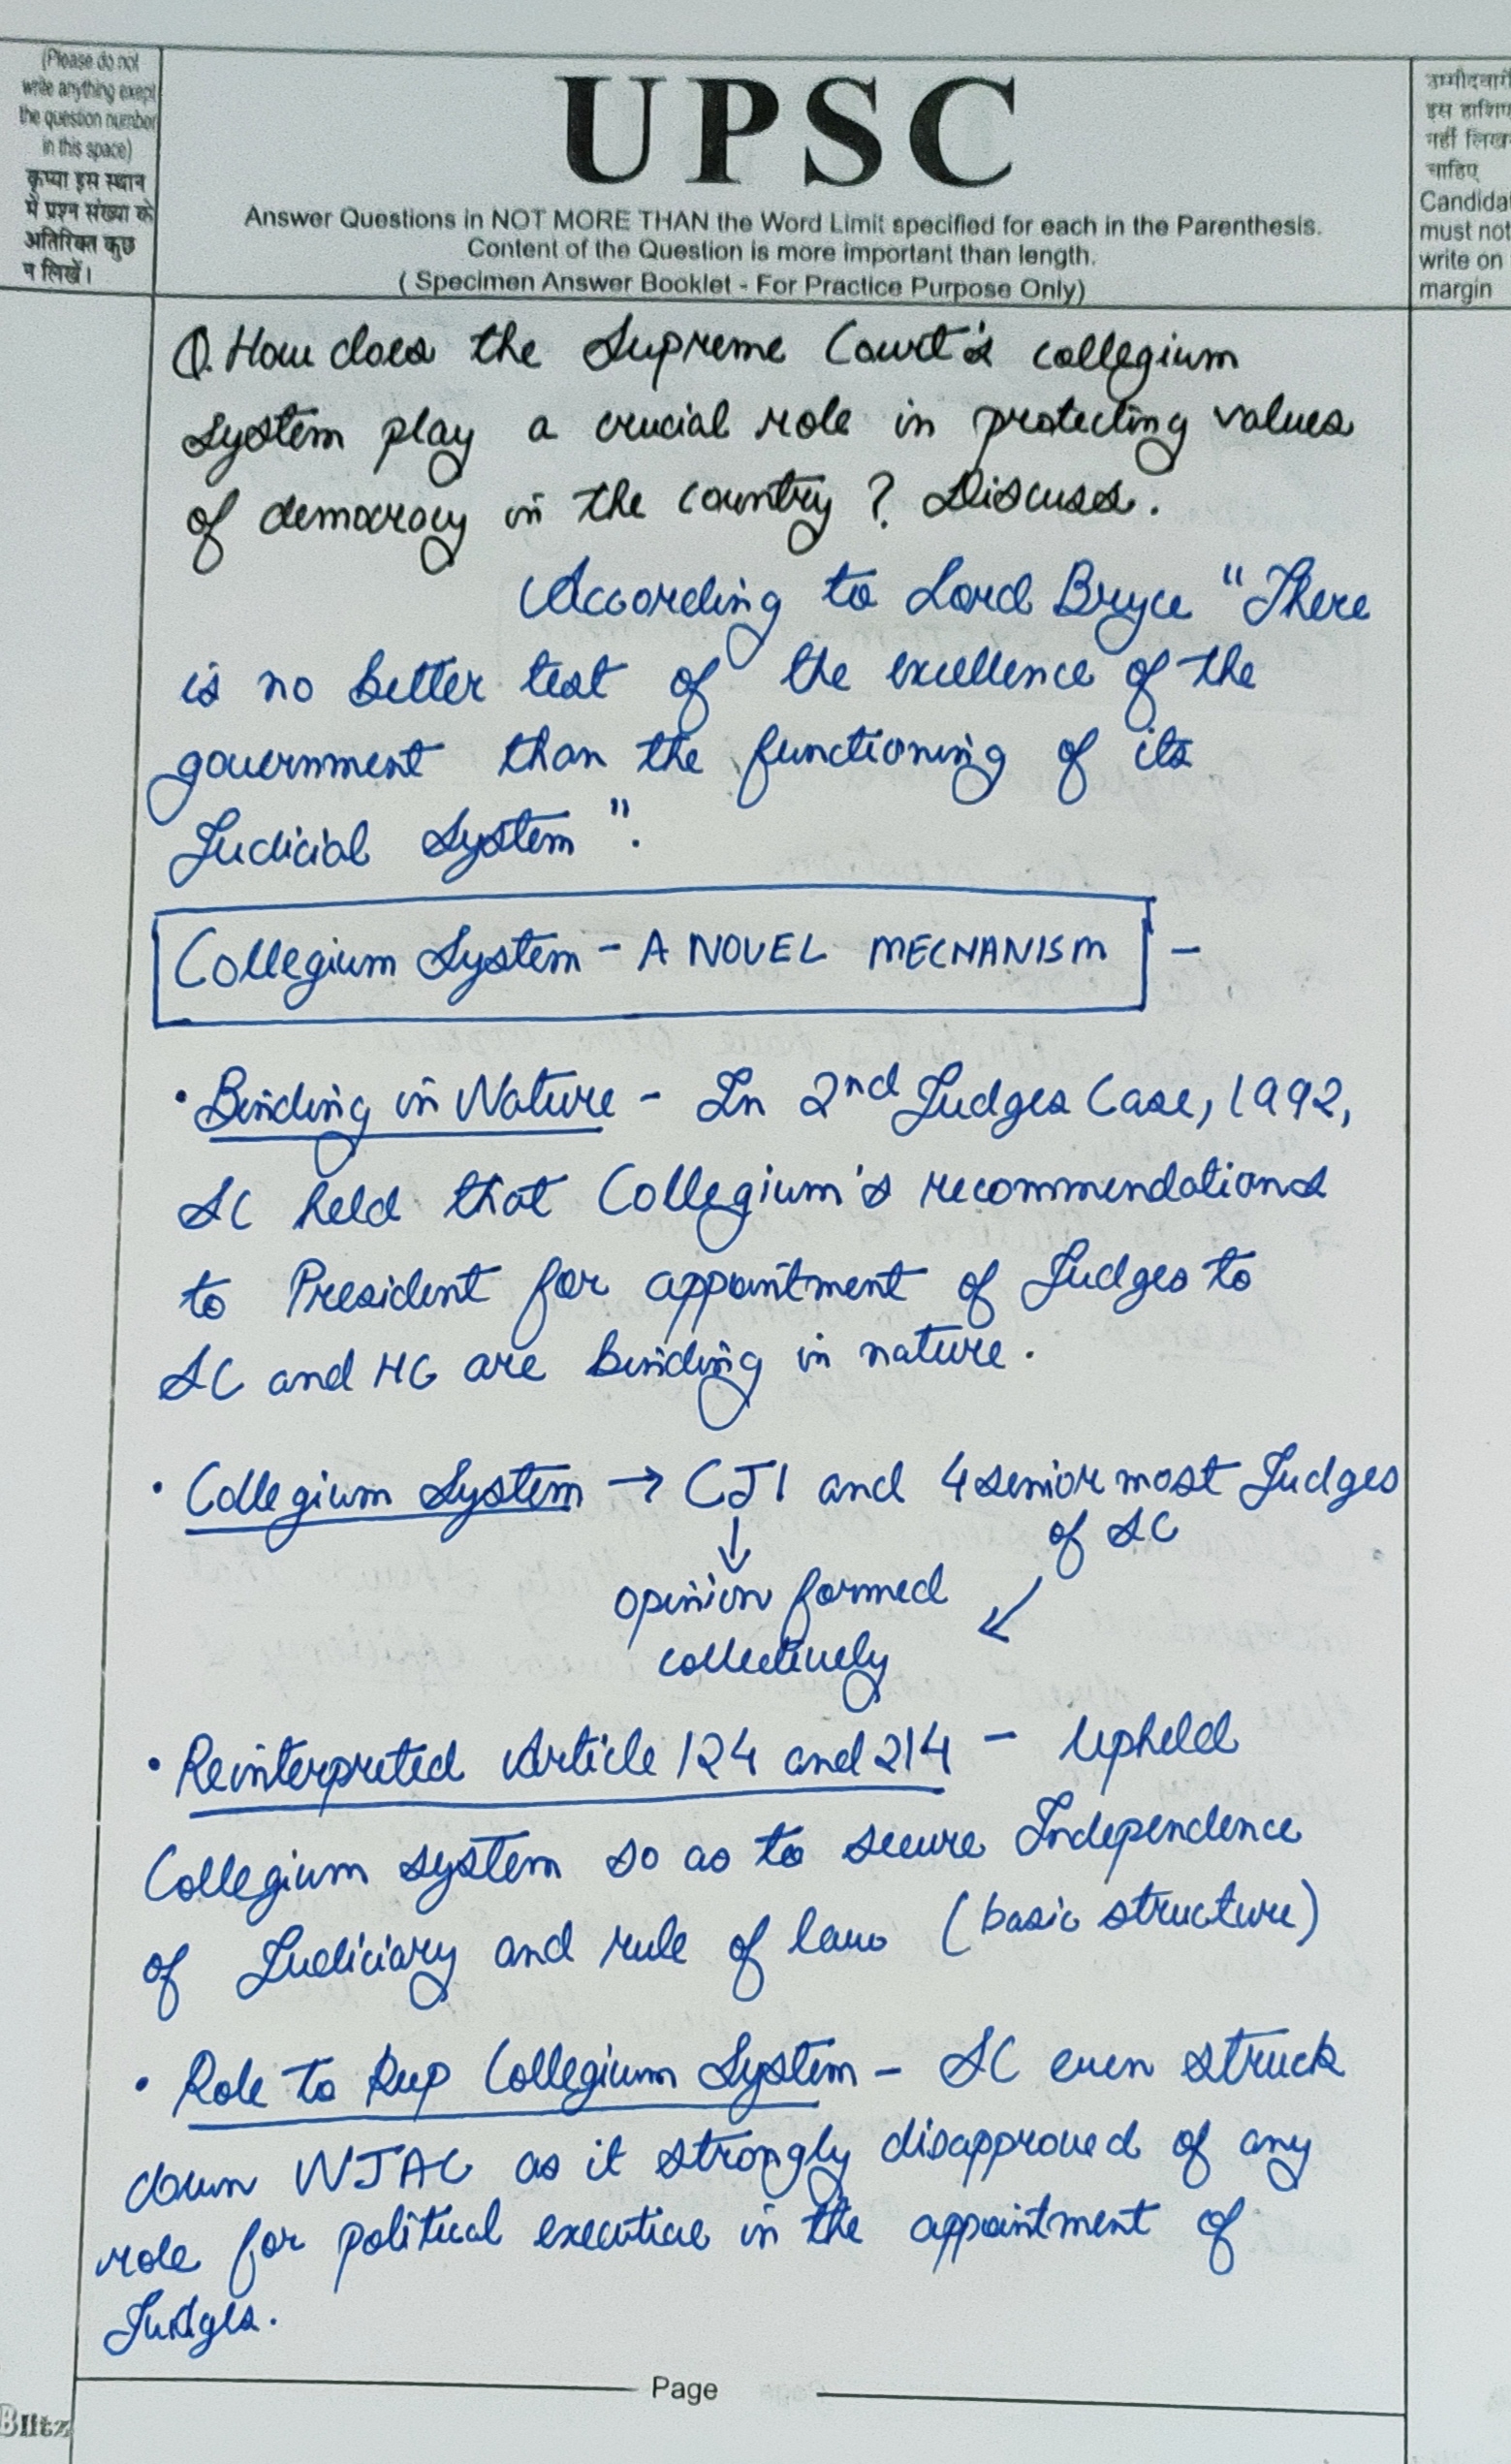 (Please do not
write anything exept
the question number
in this space)
कृप्या इस स्थान
में प्रश्न संख्या के
अतिरिक्त कुछ
न लिखें।
UPSC
Answer Questions in NOT MORE THAN the Word Limit specified for each in the Parenthesis.
Content of the Question is more important than length.
( Specimen Answer Booklet - For Practice Purpose Only)
इस
चाहिए
Candida
must not
write on
margin
Q. How does the Supreme Court's collegium
system play a crucial role in protecting values
of democracy in the country ? Discuss.
According to Lord Bryce "There
is no better test of the excellence of the
government than the functioning of its
Judicial System".
Collegium System - A NOVEL MECHANISM -
• Binding in Nature - In 2nd Judges Case, 1992,
SC held that Collegium's recommendations
to President for appointment of Judges to
SC and HC are binding in nature.
• Collegium System → CJI and 4 senior most Judges
of SC
↓
opinion formed ↙
collectively
• Reinterpreted Article 124 and 214 - Upheld
Collegium system so as to secure Independence
of Judiciary and rule of law (basic structure)
• Role to Keep Collegium System - SC even struck
down NJAC as it strongly disapproved of any
role for political executive in the appointment of
Judges.
Page
Blitz